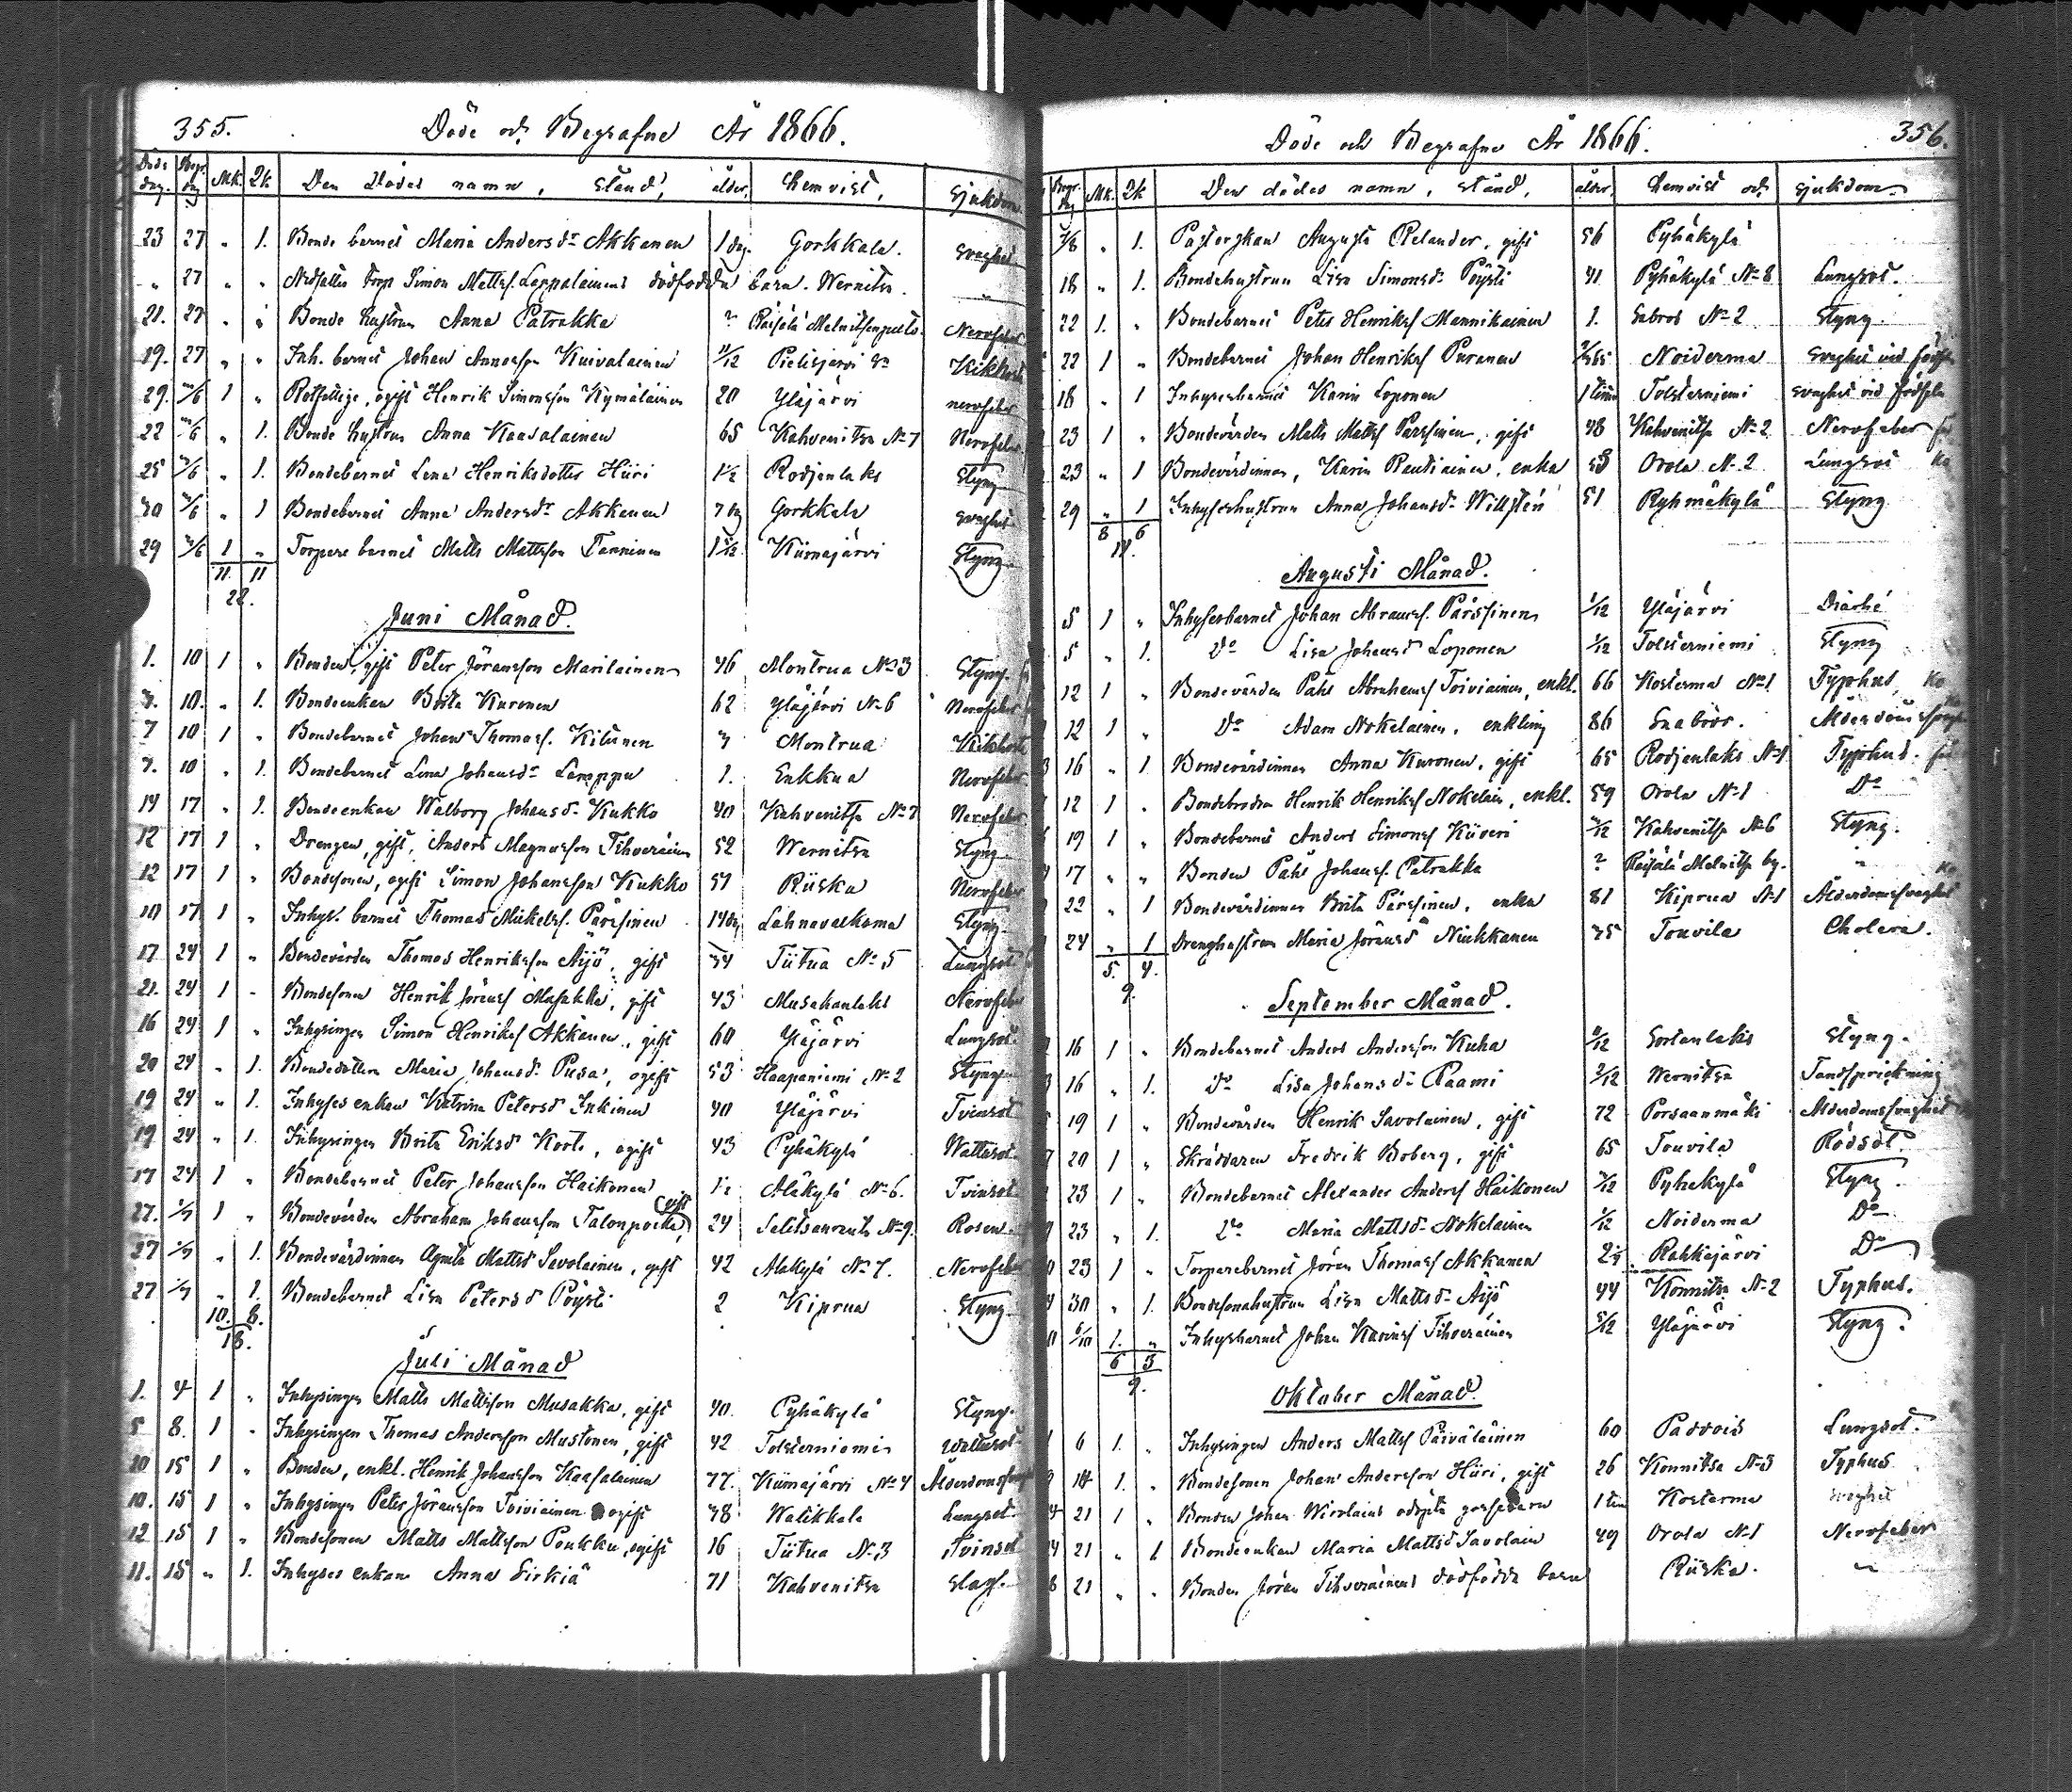 355. Döde och Begrafne År 1866.
Döds dag. Begr. dag Mk. Qk Den Dödes namn, stånd, ålder, hemvist, sjukdom
23 27 " 1. Bonde barnet Maria Andersdr Akkanen 1 dag Gorkkala. Svaghet
" 27 " " Simon Mattss. Lappalainens dödfödda barn. Wernitsa.
21. 27 " " Bonde hustrun Anna Patrakka ? Räisälä Nervfeber
19. 27 " " Inh. barnet Johan Annasson Kuivalainen 11/12 Pielisjärvi Kikhosta
29. 1 " Rotfattige, ogift Henrik Simonsson Kymäläinen 20 Yläjärvi nervfeber
22 " 1. Bonde hustrun Anna Kaasalainen 65 Kahvenitsa No 7 Nervfeber
25 " 1. Bondebarnet Lena Henriksdotter Hiiri 1½ Rodjenlaks Styng
30 " 1 Bondebarnet Anna Andersdr Akkanen 7 dg Gorkkala Svaghet
29 1 " Torpare barnet Matts Mattsson Tanninen Kiimajärvi Styng
11. 11
22.
Juni Månad.
1. 10 1 " Bonden, gift Peter Jöransson Marilainen 46 Montrua No 3 Styng.
10. " 1. Bondeenkan Brita Kuronen 62 Yläjärvi No 6 Nervfeber
7 10 1 " Bondebarnet Johan Thomass. Kitunen Montrua Kikhosta
10 " 1. Bondebarnet Lena Johansdr Lamppu 1. Enkkua Nervfeber
14 17 " 1. Bondeenkan Walborg Johansd. Kukko 40 Kahvenitsa No 7 Nervfeber
12 17 1 " Drengen, gift, Anders Magnusson Tihveräinen 52 Wernitsa Styng
12 17 1 " Bondesonen, ogift Simon Johansson Kukko 51 Riiska Nervfeber
10 17 1 " Inhys. barnet Thomas Mickelss. Pärssinen 14 dg Lahnavalkama Styng.
17 24 1 " Bondevärden Thomas Henriksson Äijö, gift 34 Tiitua No 5 Lungsot
21. 24 1 " Bondesonen Henrik Jöranss Musakka, gift 43 Musakanlaks Nervfeber
16 24 1 " Inhysingen Simon Henrikss Akkanen, gift 60 Yläjärvi Lungsot.
20 24 " 1. Bondedottren Maria Johansd. Pusa, ogift 53 Haapaniemi No 2 Styng
19 24 " 1. Inhyses enkan Katrina Petersd Inkinen 40 Yläjärvi Tvinsot
19 24 " 1. Inhysingen Brita Eriksd Korte, ogift 43 Pyhäkylä Wattusot
17 24 1 " Bondebarnet Peter Johansson Haikonen 1½ Aläkylä No 6. Tvinsot
27. 1/7 1 " Bondevärden Abraham Johansson Talonpoika, gift 24 No 9. Rosen
27 1/7 " 1. Bondevärdinnan Agneta Mattsd Savolainen, gift 42 Alakylä No 7. Nervfeber
27 1/7 " 1. Bondebarnet Lisa Petersd Pöysti 2 Kiprua Styng.
10. 8.
18.
Juli Månad
1. 4 1 " Inhysingen Matts Mattsson Musakka, gift 40. Pyhäkylä Styng.
5 8. 1 " Inhysingen Thomas Andersson Mustonen, gift 42 Tolsterniemi Wattusot
10 15 1 " Bonden, enkl. Henrik Johansson Kaasalainen 77. Kiimajärvi No 4 Ålderdomssvaghet
10. 15 1 " Inhysingen Peter Jöransson Toiviainen ogift 38 Walikkala Lungsot.
12 15 1 " Bondesonen Matts Mattsson Poukku, ogift 16 Tiitua No 3 Tvinsot
11. 15 " 1. Inhyses enkan Anna Sirkiä 71 Kahvenitsa Slag.
Döde och Begrafne År 1866. 356.
Begr. dag Mk. Qk Den dödes namn, stånd, ålder, hemvist och sjukdom
" 1. Pastorskan Augusta Relander, gift 56 Pyhäkylä
18 " 1. Bondehustrun Lisa Simonsd. Pöysti 41 Pyhäkylä No 8 Lungsot.
22 1. " Bondebarnet Peter Henrikss Mannikainen 1. Snbros No 2 Styng.
22 1 " Bondebarnet Johan Henrikss Puranen Noiderma Svaghet vid födseln
18 " 1 Inhysesbarnet Karin Loponen 1 timme Tolsterniemi Svaghet vid födseln
23 1 " Bondevärden Matts Mattss Pärssinen, gift 48 Kahvenitsa No 2 Nervfeber
23 " 1 Bondevärdinnan, Karin Rautiainen, enka 58 Orola No 2 Lungsot
29 " 1 Inhyseshustrun Anna Johansd. Willstén 51 Ryhmäkylä Styng
8 6
14.
Augusti Månad.
5 1 " Inhysesbarnet Johan Abramss. Pärssinen 1/12 Yläjärvi Diarhé
5 " 1. Do Lisa Johansd Loponen 1/12 Tolsterniemi Styng
12 1 " Bondevärden Påhl Abrahamss Toiviainen, enkl. 66 Kosterma No 1 Typhus,
12 1 " Do Adam Nokelainen, enkling 86 Ålderdomssvaghet
16 " 1 Bondevärdinnan Anna Kuronen, gift 65 Rodjenlaks No 1 Typhus.
12 1 " Bondebrodren Henrik Henrikss Nokelain, enkl. 59 Orola No 1 Do
19 1 " Bondebarnet Anders Simonss Kiiveri Kahvenitsa No 6 Styng.
17 " " Bonden Påhl Johanss. Patrakka ? Räisälä Melnitsa by. "
22 " 1 Bondevärdinnan Brita Pärssinen, enka 81 Kiprua No 1 Ålderdomssvaghet
24 " 1 Drenghustrun Maria Jöransd Niukkanen 35 Touvila Cholera.
5. 4.
9.
September Månad.
16 1 " Bondebarnet Anders Andersson Kuha Sortanlaks Styng.
16 " 1. Do Lisa Johansdr Paami 2/12 Wernitsa Tandsprickning
19 1 " Bondevärden Henrik Savolainen, gift 72 Porsaanmäki Ålderdomssvaghet
20 1 " Skräddaren Fredrik Boberg, gift 65 Touvila Rödsot.
23 1 " Bondebarnet Alexander Anderss Haikonen Pyhäkylä Styng.
23 " 1. Do Maria Mattsd. Nokelainen 1/12 Noiderma Do
23 1 " Torparebarnet Jöran Thomass Akkanen Rahkajärvi Do
30 " 1. Bondesonahustrun Lisa Mattsd. Äijö 44 Konnitsa No 2 Typhus.
6/10 1. " Inhysbarnet Johan Karinss Tihveräinen Yläjärvi Styng.
6 3
9.
Oktober Månad.
6 1. " Inhysingen Anders Mattss Päiväläinen 60 Lungsot.
14 1. " Bondesonen Johan Andersson Hiiri, gift 26 Konnitsa No 3 Typhus
21 1 " Bonden Johan odöpta gossebarn 1 tim Kosterma Svaghet
21 " 1 Bondeenkan Maria Mattsd Savolain 49 Orola No 1 Nervfeber
21 " " Bonden Jöran Tihveräinens dödfödda barn Riiska.